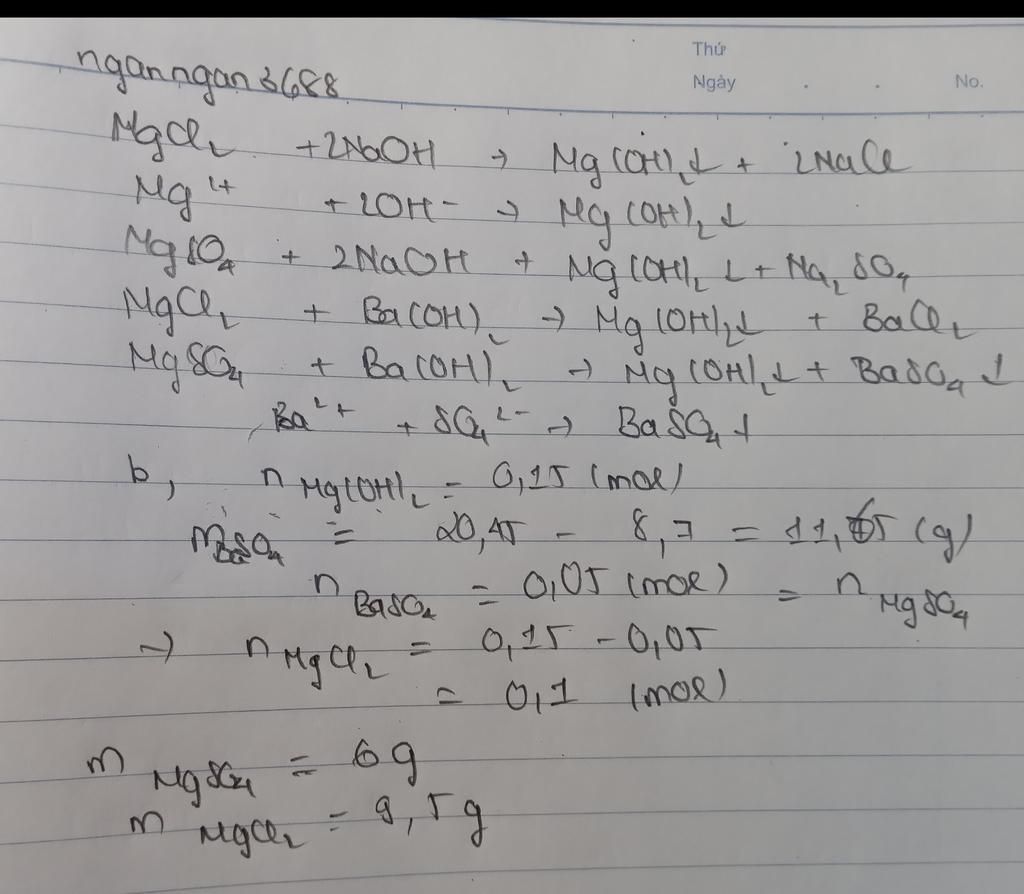 Thứ
Ngày . . No.
nganngan3688
MgCl₂ +2NaOH → Mg(OH)₂↓ + 2NaCl
Mg²⁺ +2OH⁻ → Mg(OH)₂↓
MgSO₄ + 2NaOH + Mg(OH)₂↓ + Na₂SO₄
MgCl₂ + Ba(OH)₂ → Mg(OH)₂↓ + BaCl₂
MgSO₄ + Ba(OH)₂ → Mg(OH)₂↓ + BaSO₄↓
Ba²⁺ + SO₄²⁻ → BaSO₄↓
b, n Mg(OH)₂ = 0,15 (mol)
m BaSO₄ = 20,45 - 8,7 = 11,65 (g)
n BaSO₄ = 0,05 (mol) = n MgSO₄
→ n MgCl₂ = 0,15 - 0,05
= 0,1 (mol)
m MgSO₄ = 6g
m MgCl₂ = 9,5g